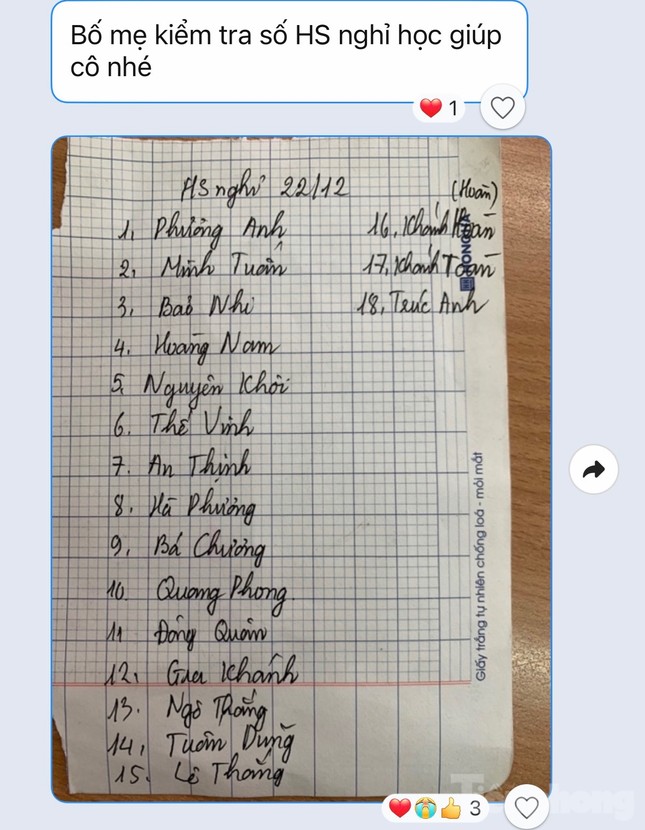 Bố mẹ kiểm tra số HS nghỉ học giúp
cô nhé
1
HS nghỉ 22/12
1, Phương Anh
2, Minh Tuấn
3, Bảo Nhi
4. Hoàng Nam
5, Nguyên Khôi
6. Thế Vinh
7. An Thịnh
8. Hà Phương
9, Bá Chương
10. Quang Phong
11 Đông Quân
12, Gia Khánh
13. Ngô Thắng
14, Tuấn Dũng
15. Lê Thắng
(Hoàn)
16, Khánh
17, Khánh Toàn
18, Trúc Anh
HONG HÀ
Giấy trắng tự nhiên chống loá - mỏi mắt
3
Tiền Phong